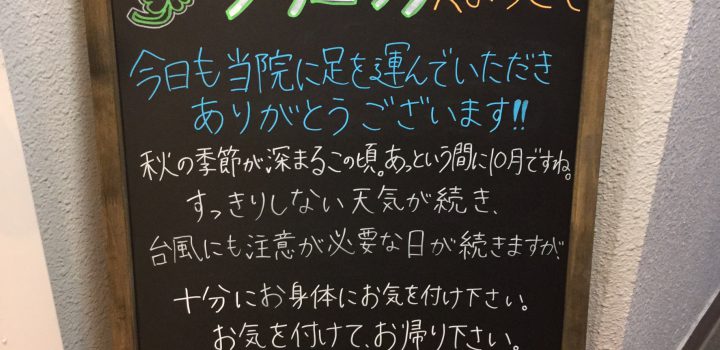 へようこそ
今日も当院に足を運んでいただき
ありがとうございます!!
秋の季節が深まるこの頃。あっという間に10月ですね。
すっきりしない天気が続き、
台風にも注意が必要な日が続きますが
十分にお身体にお気を付け下さい。
お気を付けて、お帰り下さい。